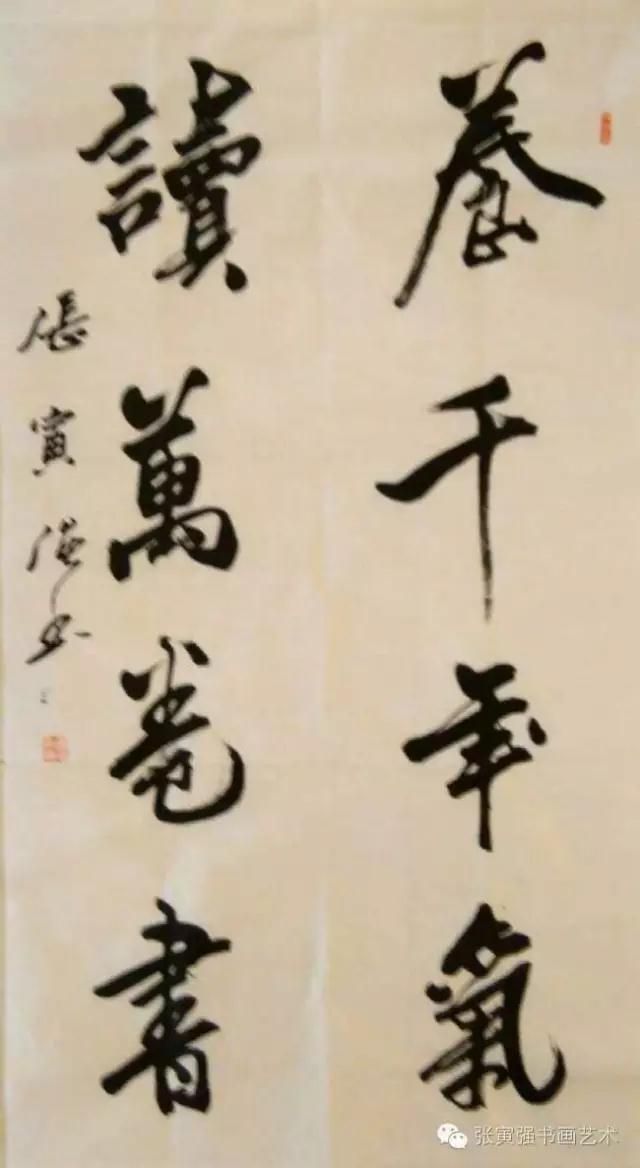 養千年氣
讀萬卷書
張寅强书
张寅强书画艺术